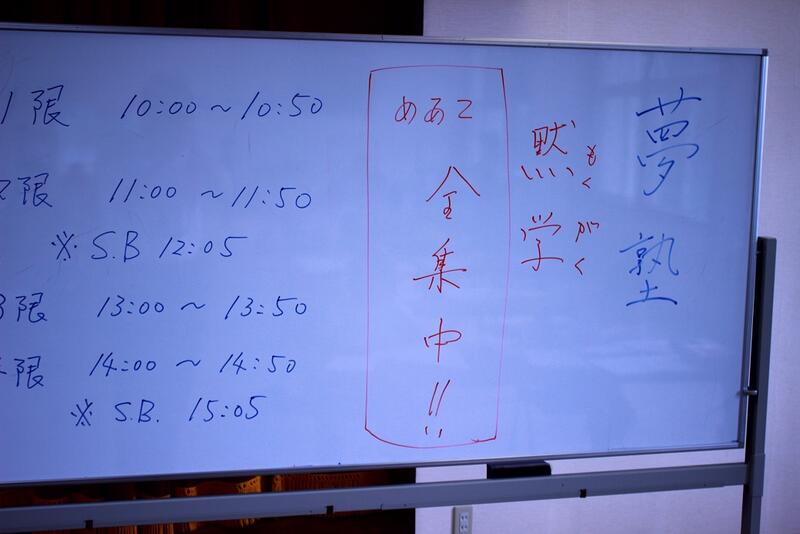 夢塾
黙学
もくがく
めあて
全集中!!
1限 10:00～10:50
2限 11:00～11:50
※ S.B 12:05
3限 13:00～13:50
限 14:00～14:50
※ S.B. 15:05